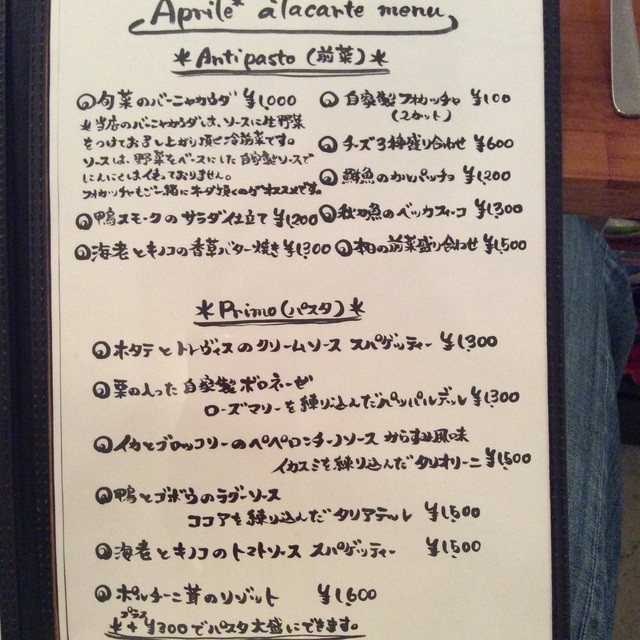 Aprile* àlacarte menu
*Antipasto (前菜)*
旬菜のバーニャカウダ ¥1,000
*当店のバーニャカウダは、ソースに生野菜
をつけてお召し上がり頂く冷前菜です。
ソースは、野菜をベースにした自家製ソースで
にんにくは使っておりません。
フォカッチャもご一緒に
鴨スモークのサラダ仕立て ¥1,200
海老とキノコの香草バター焼き ¥1,300
自家製フォカッチャ ¥100
(2カット)
チーズ3種盛り合わせ ¥600
鮮魚のカルパッチョ ¥1,200
秋刀魚のベッカフィーコ ¥1,300
本日の前菜盛り合わせ ¥1,500
*Primo(パスタ)*
ホタテとトレヴィスのクリームソース スパゲッティー ¥1,300
栗の入った自家製ボロネーゼ
ローズマリーを練り込んだパッパルデッレ ¥1,300
イカとブロッコリーのペペロンチーノソース からすみ風味
イカスミを練り込んだタリオリーニ ¥1,500
鴨とゴボウのラグーソース
ココアを練り込んだタリアテッレ ¥1,500
海老とキノコのトマトソース スパゲッティー ¥1,500
ポルチーニ茸のリゾット ¥1,600
プラス
*+¥300でパスタ大盛にできます。